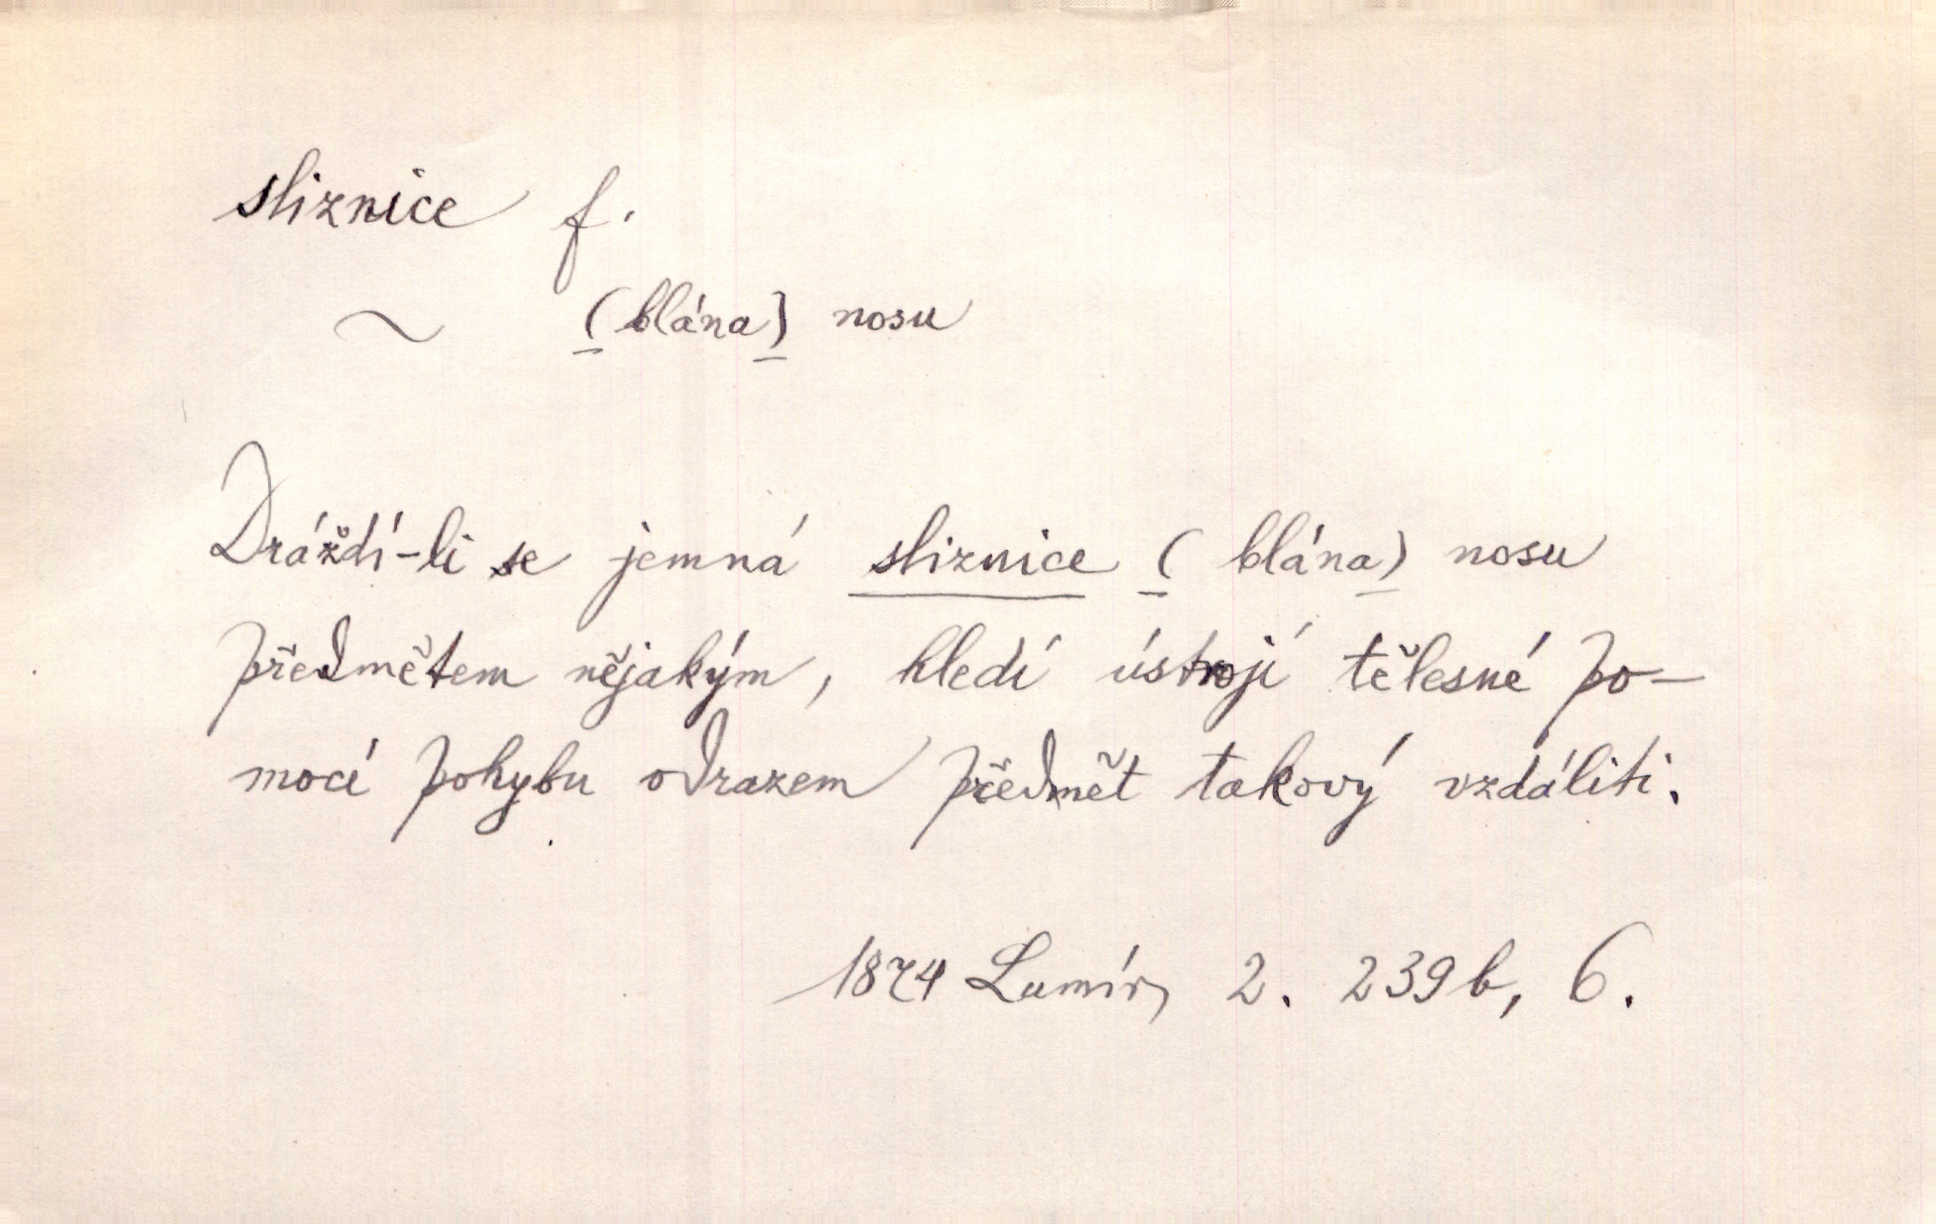 sliznice f.
~ (blána) nosu
Dráždí-li se jemná sliznice (blána) nosu
předmětem nějakým, hledí ústrojí tělesné po-
mocí pohybu odrazem předmět takový vzdáliti.
1874 Lumír, 2. 239b, 6.